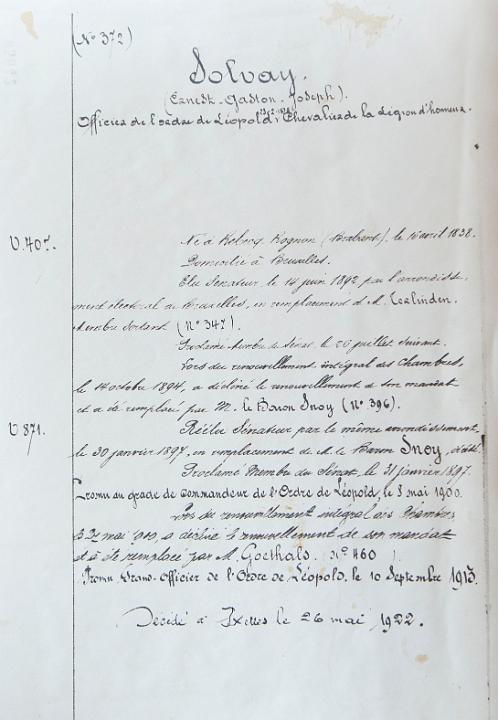 (N° 372)
Solvay.
(Ernest-Gaston-Joseph).
Officier de l'ordre de Léopold, Chevalier de la Légion d'honneur.
V. 407.
Né à Rebecq Rognon (Brabant), le 16 avril 1838.
Domicilié à Bruxelles.
Elu Sénateur, le 14 juin 1892 par l'arrondisse-
ment électoral de Bruxelles, en remplacement de M. Terlinden.
membre sortant (N° 347).
Proclamé membre du Sénat, le 26 juillet suivant.
Lors du renouvellement intégral des Chambres,
le 14 octobre 1894, a décliné le renouvellement de son mandat
et a été remplacé par M. le Baron Snoy (N° 396).
V 871.
Réélu Sénateur par le même arrondissement
le 30 janvier 1897, en remplacement de M. le Baron Snoy, décédé.
Proclamé Membre du Sénat, le 31 janvier 1897.
Promu au grade de Commandeur de l'Ordre de Léopold, le 5 mai 1900.
Lors du renouvellement intégral des Chambres,
le 27 mai 1900, a décliné le renouvellement de son mandat
et a été remplacé par M. Goethals. (N° 460).
Promu Grand-Officier de l'Ordre de Léopold, le 10 Septembre 1913.
Décédé à Ixelles le 26 mai 1922.